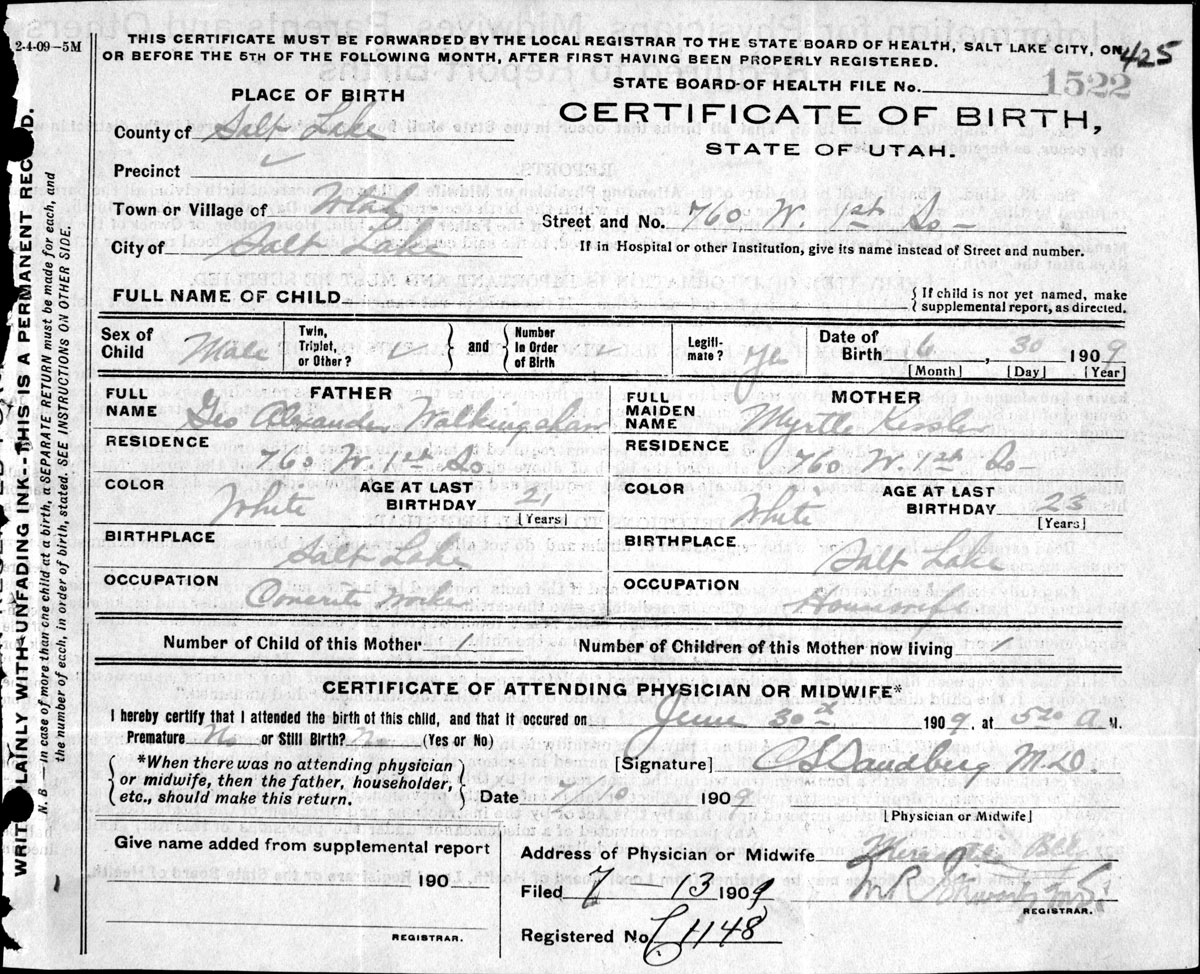 2-4-09—5M
THIS CERTIFICATE MUST BE FORWARDED BY THE LOCAL REGISTRAR TO THE STATE BOARD OF HEALTH, SALT LAKE CITY, ON
OR BEFORE THE 5TH OF THE FOLLOWING MONTH, AFTER FIRST HAVING BEEN PROPERLY REGISTERED.
425
STATE BOARD OF HEALTH FILE No. 1522
PLACE OF BIRTH
CERTIFICATE OF BIRTH,
STATE OF UTAH.
County of Salt Lake
Precinct
Town or Village of Utah
Street and No. 760 W. 1st So
City of Salt Lake
If in Hospital or other Institution, give its name instead of Street and number.
FULL NAME OF CHILD
{ If child is not yet named, make
supplemental report, as directed.
Sex of Child Male
Twin, Triplet, or Other?
and
Number in Order of Birth
Legiti-mate? Yes
Date of Birth 6, 30 1909
[Month] [Day] [Year]
FATHER
FULL NAME Geo Alexander Walkingshaw
RESIDENCE
760 W. 1st So
COLOR White
AGE AT LAST BIRTHDAY 21
[Years]
BIRTHPLACE
Salt Lake
OCCUPATION
Concrete
MOTHER
FULL MAIDEN NAME Myrtle Kessler
RESIDENCE
760 W. 1st So
COLOR White
AGE AT LAST BIRTHDAY 23
[Years]
BIRTHPLACE
Salt Lake
OCCUPATION
Housewife
Number of Child of this Mother 1
Number of Children of this Mother now living 1
CERTIFICATE OF ATTENDING PHYSICIAN OR MIDWIFE*
I hereby certify that I attended the birth of this child, and that it occured on June 30th, 1909, at 520 A M.
Premature No or Still Birth? No (Yes or No)
{ *When there was no attending physician
or midwife, then the father, householder,
etc., should make this return. }
[Signature] Sandberg M.D.
Date 7/10 1909
[Physician or Midwife]
Give name added from supplemental report
190
REGISTRAR.
Address of Physician or Midwife
Filed 7—13 1909
REGISTRAR.
Registered No. 1148
WRITE PLAINLY WITH UNFADING INK---THIS IS A PERMANENT RECORD.
N. B.—In case of more than one child at a birth, a SEPARATE RETURN must be made for each, and
the number of each, in order of birth, stated. SEE INSTRUCTIONS ON OTHER SIDE.